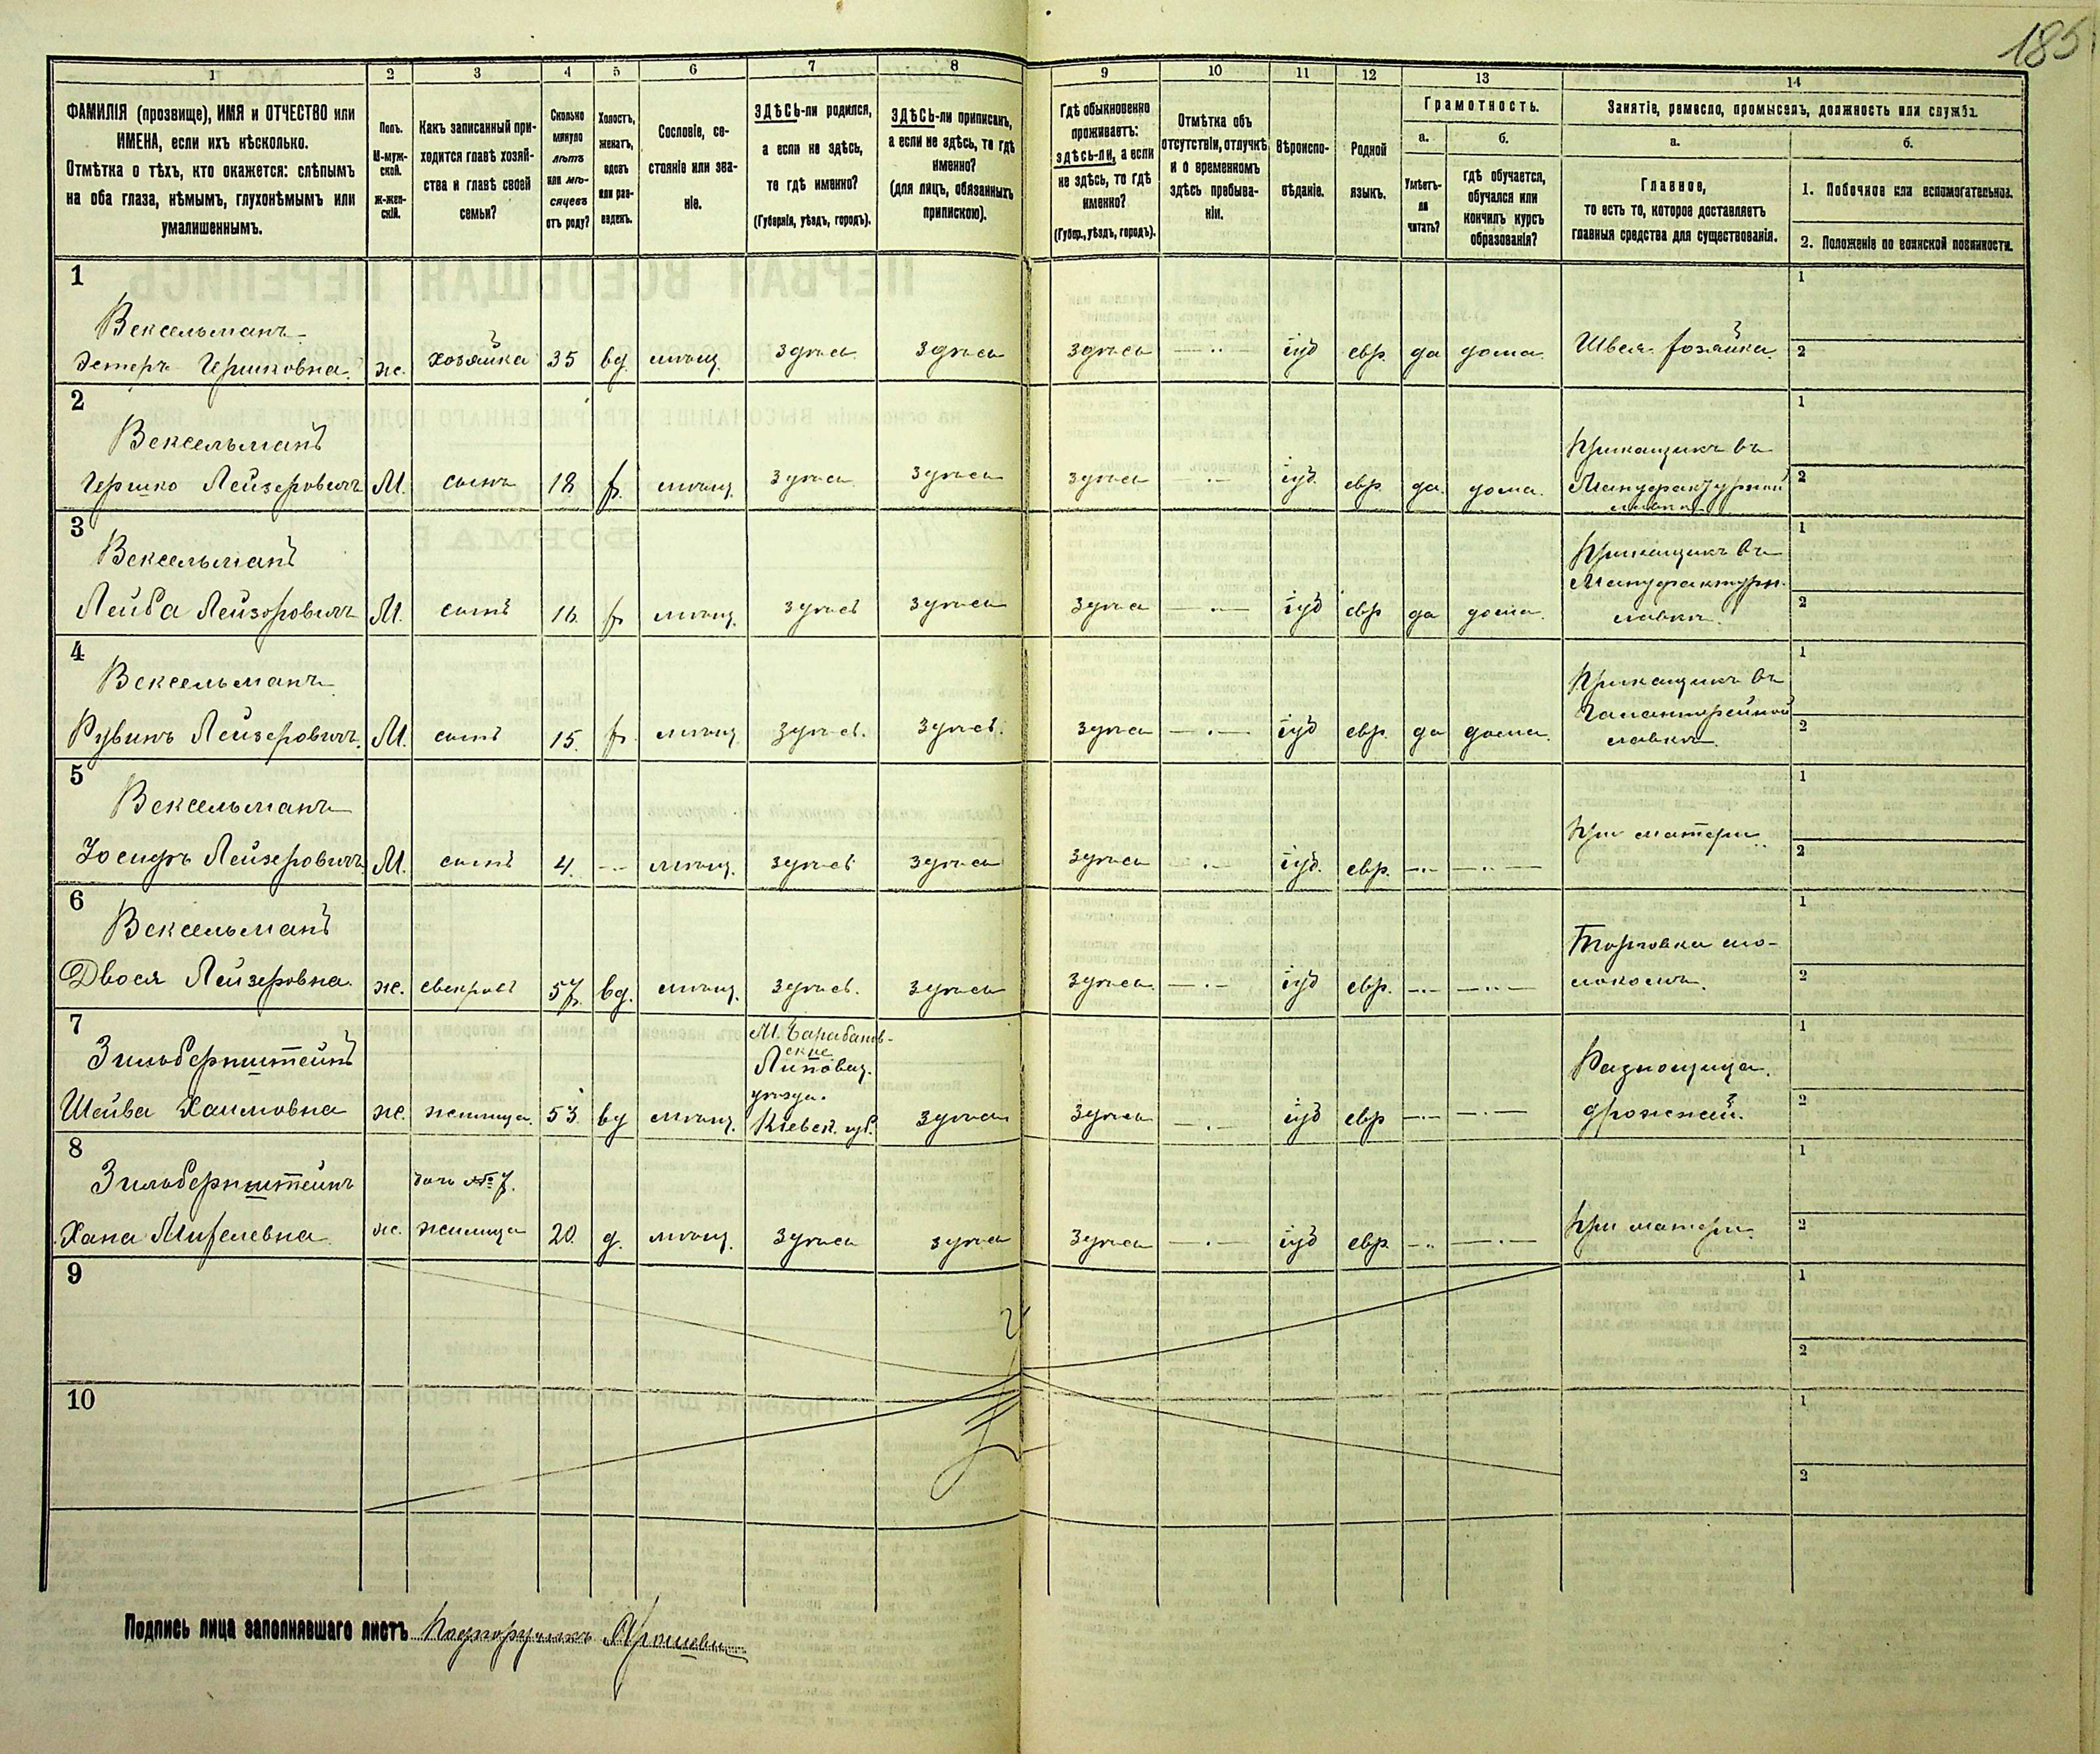 185
1 2 3 4 5 6 7 8 9 10 11 12 13 14
ФАМИЛІЯ (прозвище), ИМЯ и ОТЧЕСТВО или
ИМЕНА, если ихъ нѣсколько.
Отмѣтка о тѣхъ, кто окажется: слѣпымъ
на оба глаза, нѣмымъ, глухонѣмымъ или
умалишеннымъ.
Полъ.
М-муж-
ской.
Ж-жен-
скій.
Какъ записанный при-
ходится главѣ хозяй-
ства и главѣ своей
семьи?
Сколько
минуло
лѣтъ
или мѣ-
сяцевъ
отъ роду?
Холостъ,
женатъ,
вдовъ
или раз-
веденъ.
Сословіе, со-
стояніе или зва-
ніе.
ЗДѢСЬ-ли родился,
а если не здѣсь,
то гдѣ именно?
(Губернія, уѣздъ, городъ).
ЗДѢСЬ-ли приписанъ,
а если не здѣсь, то гдѣ
именно?
(для лицъ, обязанныхъ
припискою).
Гдѣ обыкновенно
проживаетъ:
здѣсь-ли, а если
не здѣсь, то гдѣ
именно?
(Губер., уѣздъ, городъ).
Отмѣтка объ
отсутствіи, отлучкѣ
и о временномъ
здѣсь пребыва-
ніи.
Вѣроиспо-
вѣданіе.
Родной
языкъ.
Грамотность.
а. б.
Умѣетъ-
ли
читать?
гдѣ обучается,
обучался или
кончилъ курсъ
образованія?
Занятіе, ремесло, промыселъ, должность или служба.
а. б.
Главное,
то есть то, которое доставляетъ
главныя средства для существованія.
1. Побочное или вспомогательное.
2. Положеніе по воинской повинности.
1
Вексельманъ
Эстеръ Гершковна ж. хозяйка 35 вд. мѣщ. здѣсь здѣсь здѣсь іуд евр. да дома Швея хозяйка
1
2
2
Вексельманъ
Гершко Лейзеровичъ М. сынъ 18 х. мѣщ. здѣсь здѣсь здѣсь іуд. евр. да. дома. Приказщикъ въ
Мануфактурной
лавкѣ
1
2
3
Вексельманъ
Лейба Лейзеровичъ М. сынъ 16 х. мѣщ. здѣсь здѣсь здѣсь іуд евр да дома. Приказщикъ въ
Мануфактурн.
лавкѣ.
1
2
4
Вексельманъ
Рувинъ Лейзеровичъ. М. сынъ 15. х. мѣщ здѣсь. здѣсь. здѣсь іуд евр. да дома. Приказщикъ въ
Галантерейной
лавкѣ.
1
2
5
Вексельманъ
Іосифъ Лейзеровичъ М. сынъ 4. мѣщ. здѣсь здѣсь здѣсь іуд. евр. При матери.
1
2
6
Вексельманъ
Двося Лейзеровна. ж. свекровь 57 вд. мѣщ. здѣсь. здѣсь здѣсь іуд евр. Торговка мо-
локомъ.
1
2
7
Зильбернштейнъ
Шейва Хаимовна ж. жилица. 53 вд мѣщ.
Липовец.
уѣзда.
Кіевск. губ.
здѣсь здѣсь іуд евр Разнощица
дрожжей.
1
2
8
Зильбернштейнъ
дочь №7.
Хана ж. жилица 20. д. мѣщ. здѣсь здѣсь здѣсь іуд евр. При матери.
1
2
9
1
2
10
1
2
Подпись лица заполнявшаго листъ Подпоручикъ